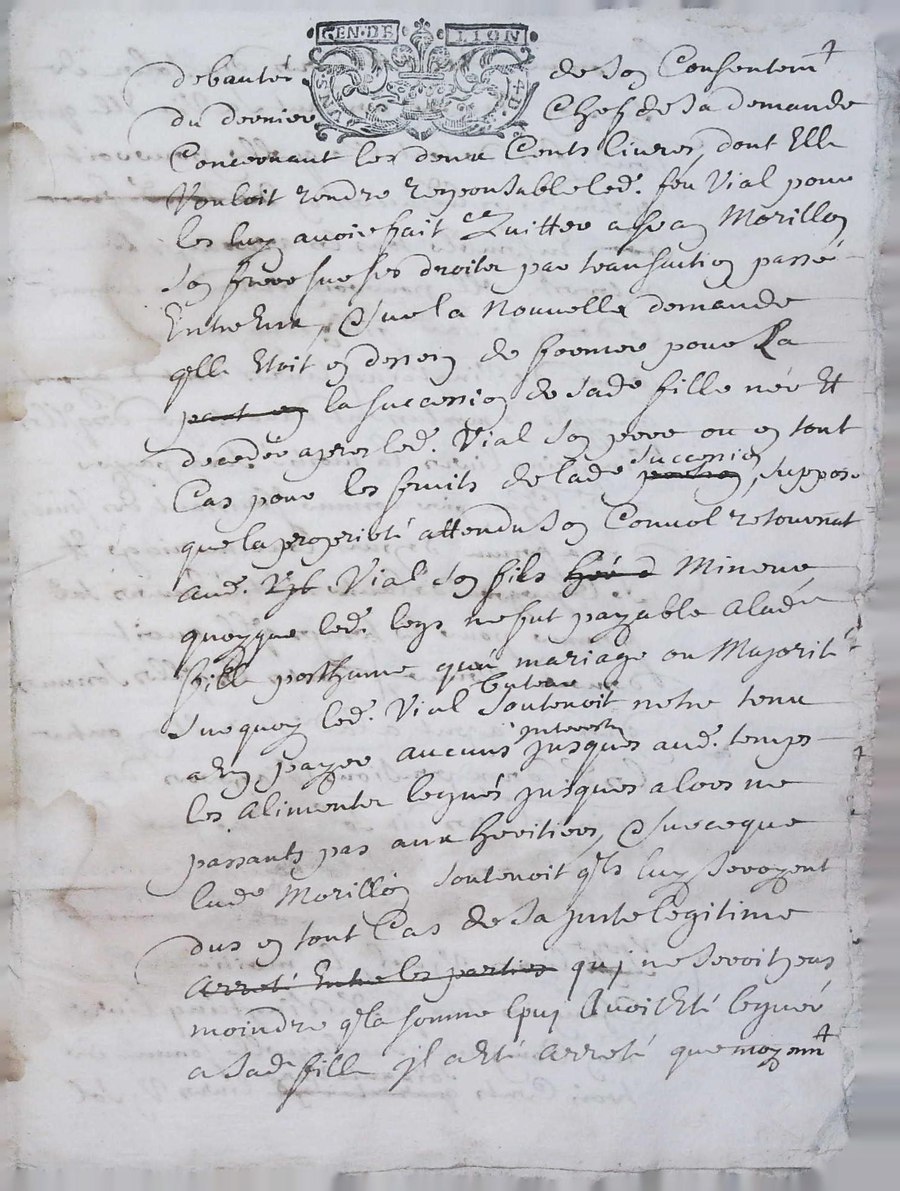 GEN·DE LION
deboutér de son Consentem^t
du dernier Chef de sa demande
Concernant les deux Cents livres, dont Elle
Vouloit rendre responsable led. feu Vial pour
les luy avoir fait Quitter a Morillon
Son frere sur ses droits par transaction passé
Entre Eux, & sur la Nouvelle demande
q^lle Etoit en dessein de former pour La
part en la succession de sade fille née Et
decedée apres led. Vial son pere ou en tout
Cas pour les fruits de lade succession portion, suppose
que la proprieté attendu son Convol retournat
aud. Vial son fils Mineur
quoyque led. legs ne fut payable a lade
fille posthume qu'au mariage ou Majorité
Surquoy led. Vial tuteur soutenoit netre tenu
a luy payer aucuns interests jusques aud. temps
les alimentz legués jusques alors ne
passants pas aux heritiers, & surceque
lade Morillon soutenoit q^ls luy seroyent
dus en tout Cas de sa juste legitime
arreté Entre les parties qui ne seroit pas
moindre q^la somme quy Avoit Eté legueé
a sade fille jl a Eté arreté que moyenn^t